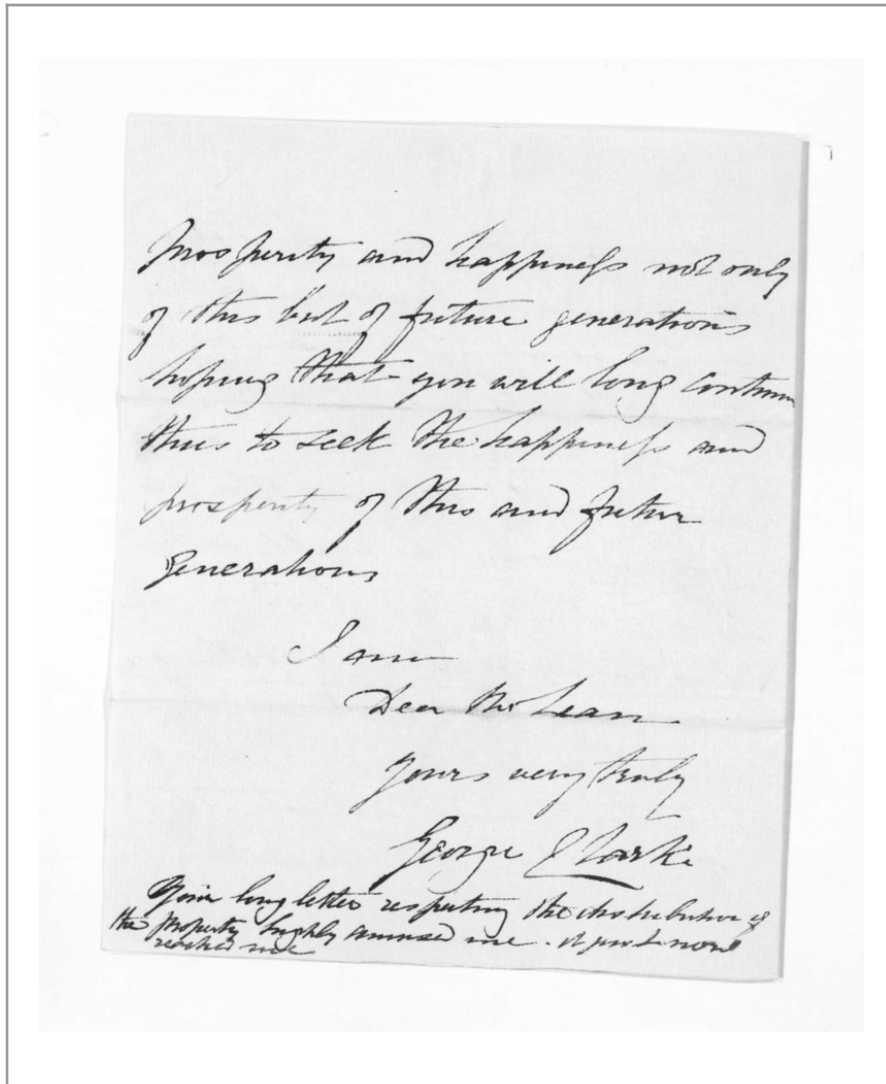 prosperity and happiness not only
of this but of future generations
hoping that you will long continue
thus to seek the happiness and
prosperity of this and future
generations
I am
Dear McLean
Yours very truly
George Clarke
Your long letter respecting the distribution of
the property highly amused me. it just now
reached me